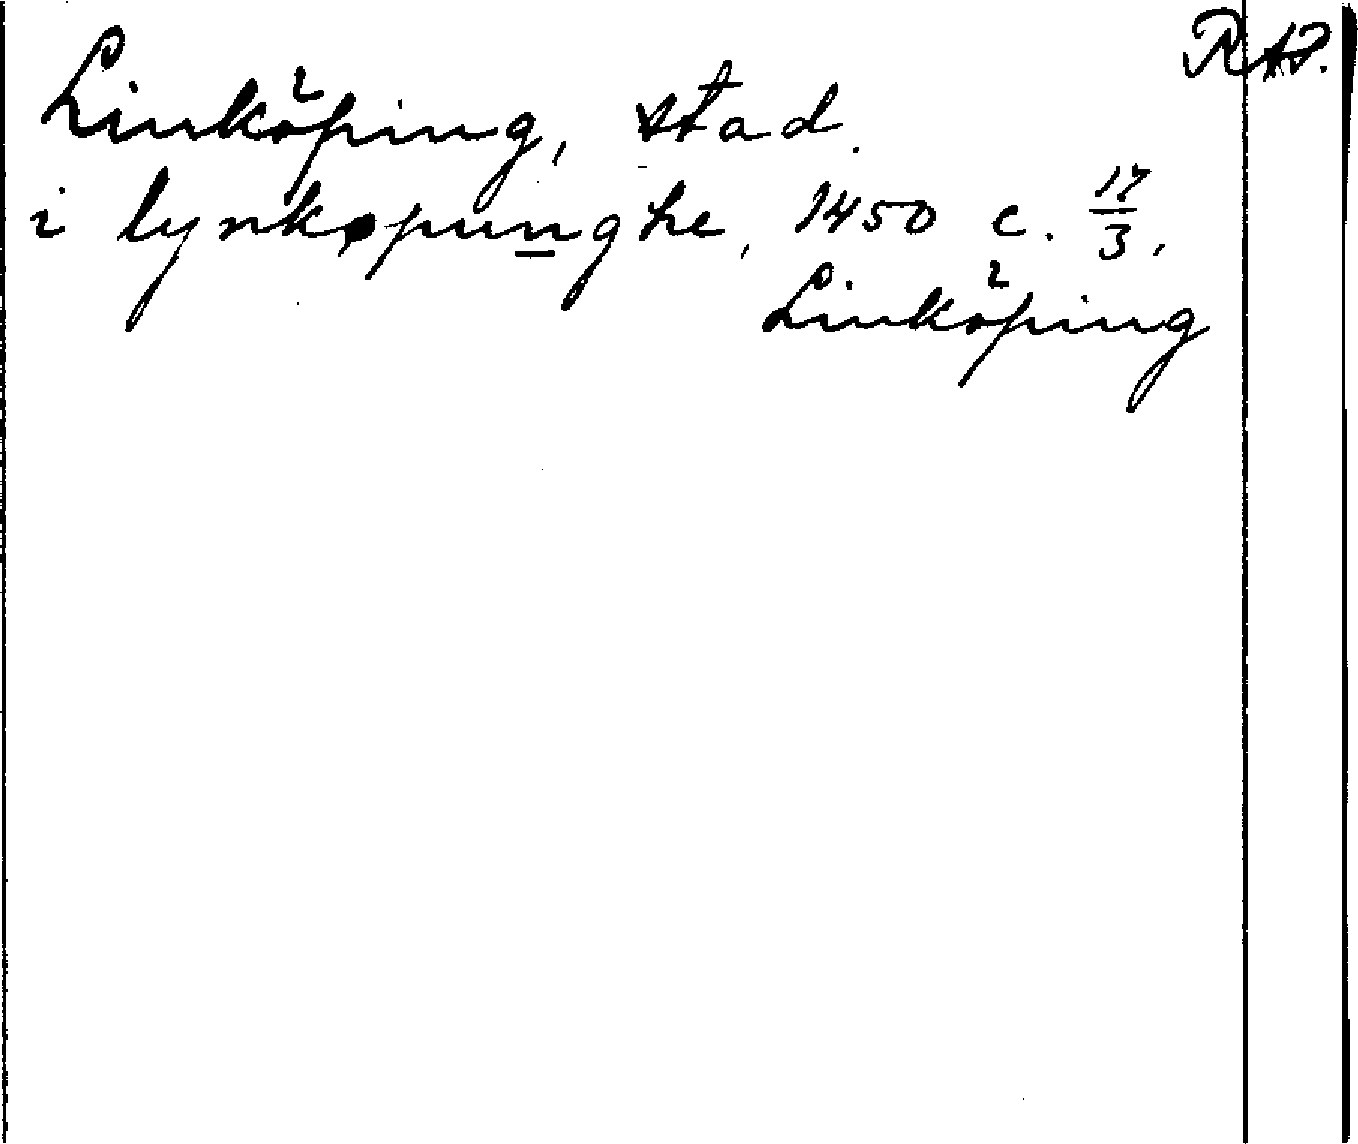 RAP.
Linköping, stad.
i lynkøpunghe, 1450 c. 17/3,
Linköping